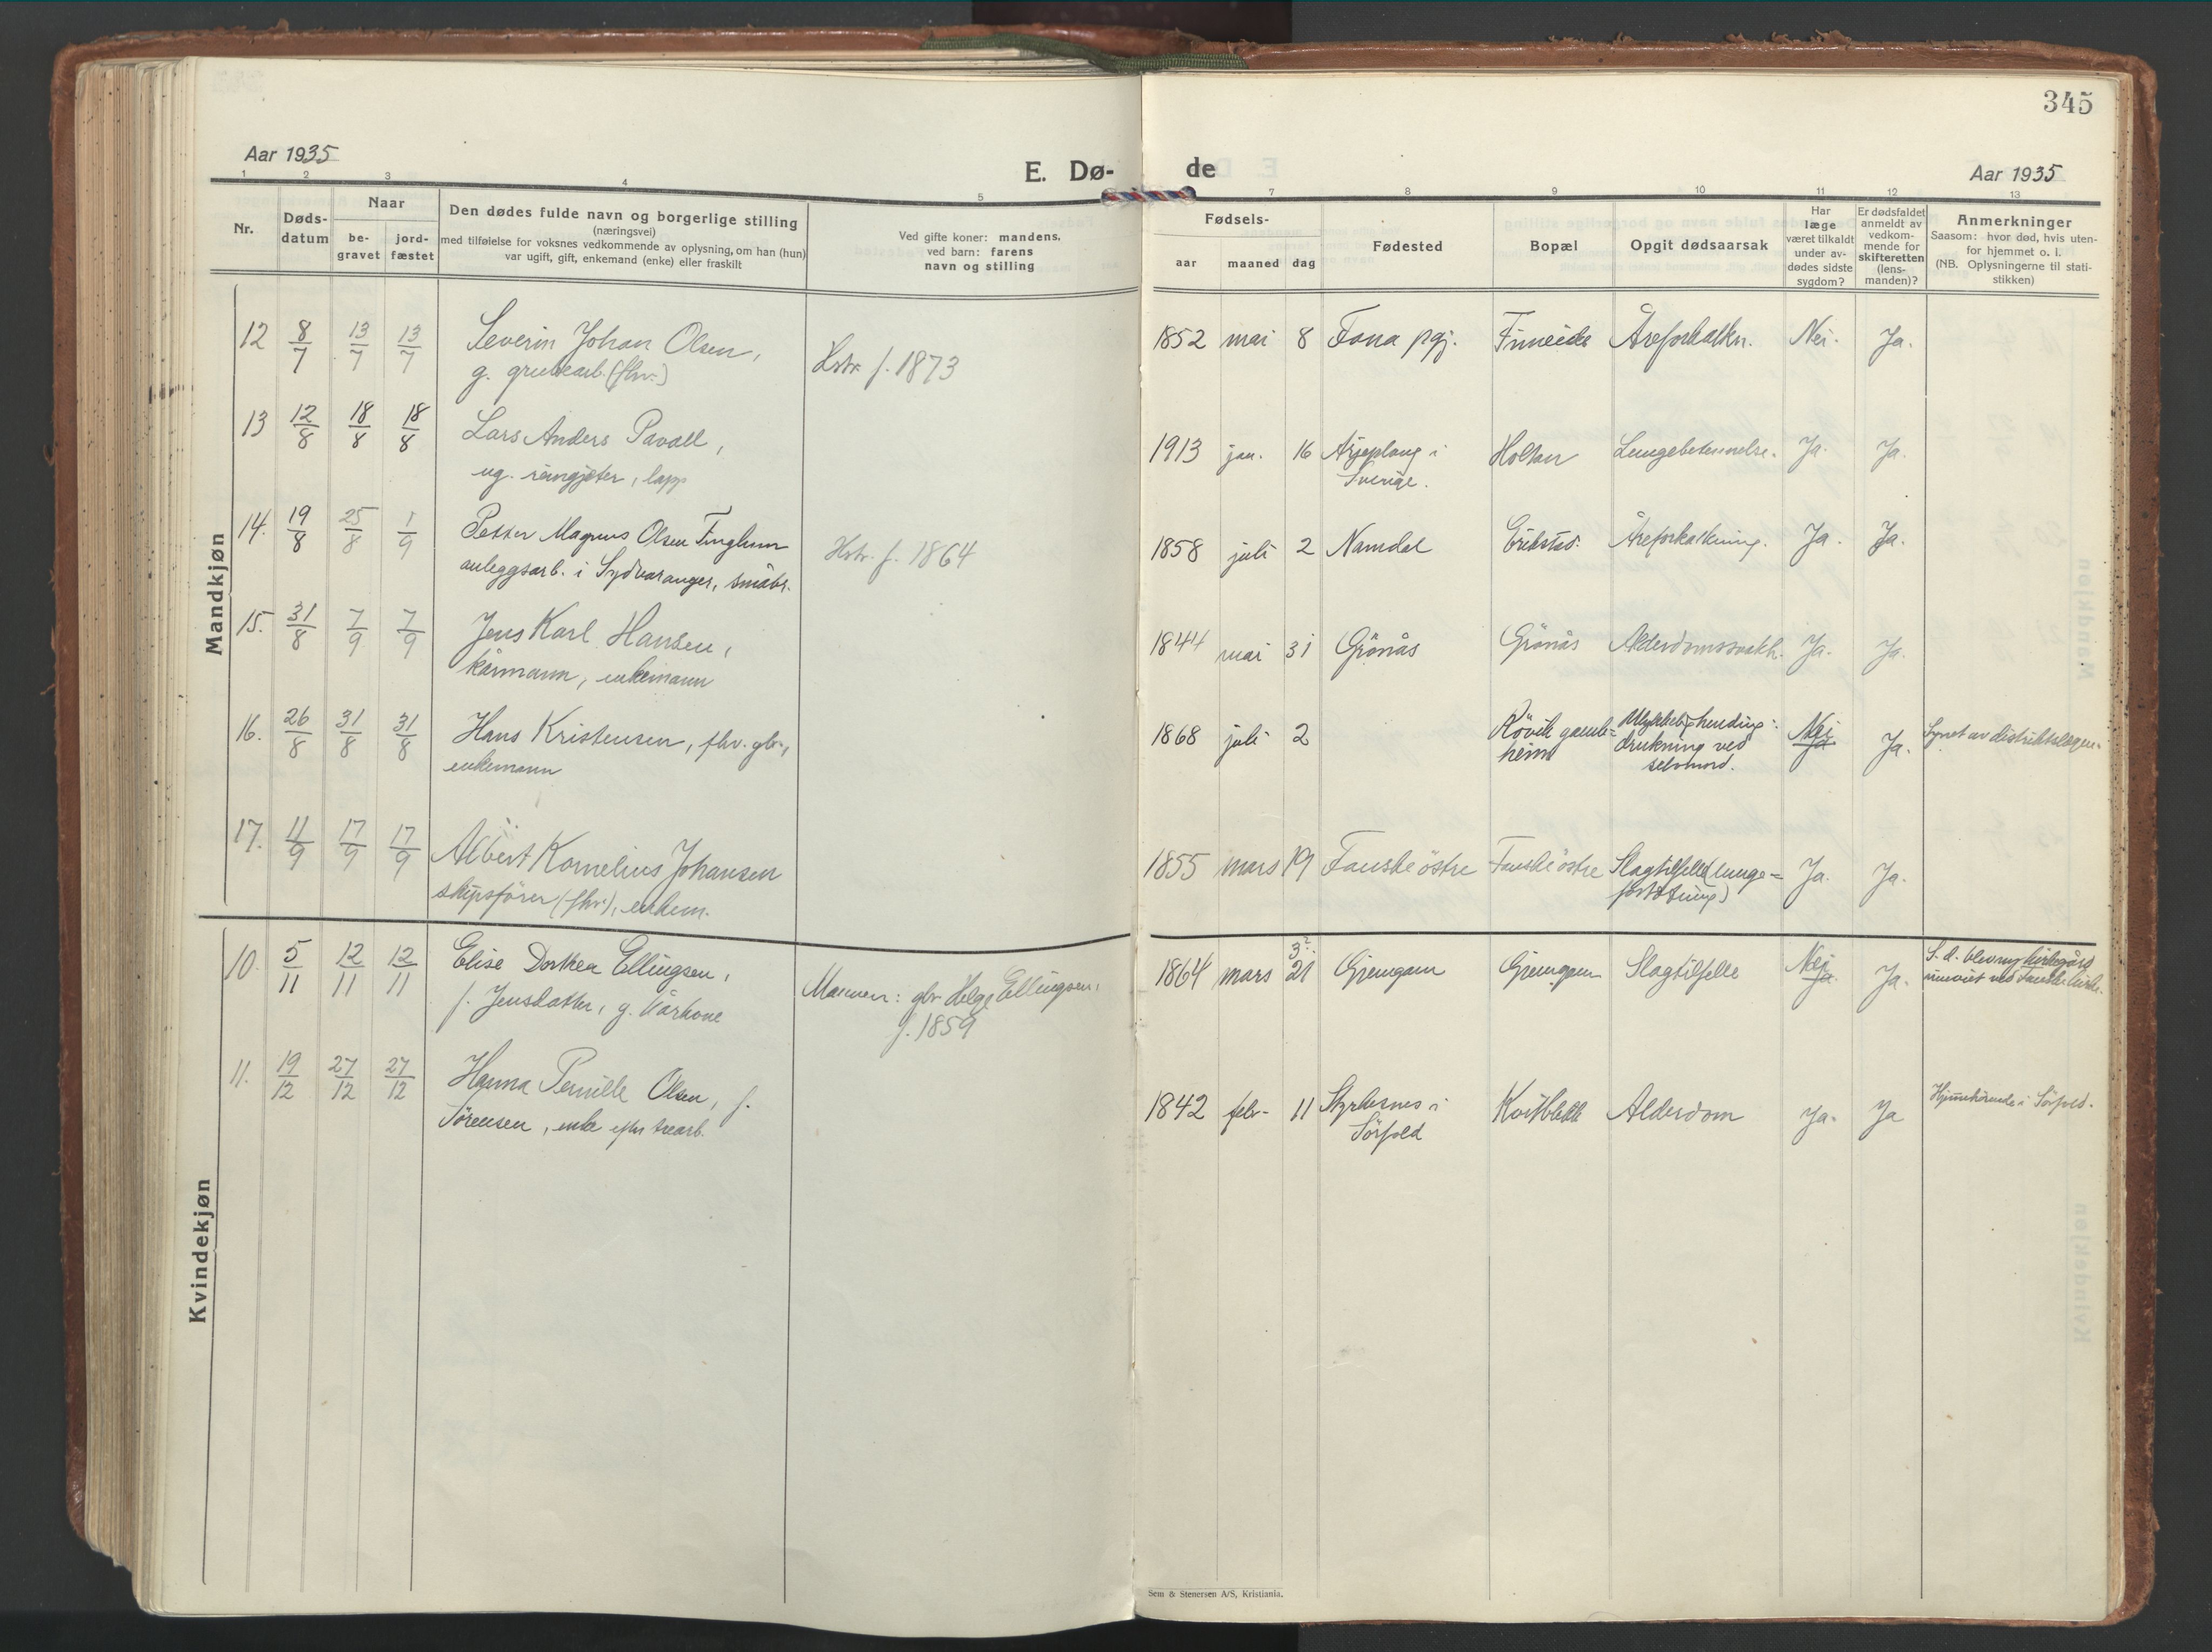 345
Aar 1935
E. Dø-
de
Aar 1935
1 2 3 4 5 7 8 9 10 11 12 13
Nr.
Døds-
datum
Naar
be-
gravet
jord-
fæstet
Den dødes fulde navn og borgerlige stilling
(næringsvei)
med tilføielse for voksnes vedkommende av oplysning, om han (hun)
var ugift, gift, enkemand (enke) eller fraskilt
Ved gifte koner: mandens.
ved barn: farens
navn og stilling
Fødsels-
aar maaned dag
Fødested
Bopæl
Opgit dødsaarsak
Har
læge
været tilkaldt
under av-
dødes sidste
sygdom?
Er dødsfaldet
anmeldt av
vedkom-
mende for
skifteretten
(lens-
manden)?
Anmerkninger
Saasom: hvor død, hvis uten-
for hjemmet o. l.
(NB. Oplysningerne til stati-
stikken)
Mandkjøn
12 8/7 13/7 13/7 Severin Johan Olsen,
g. grubearb. (fhv.)
Hstr. f. 1873
1852 mai 8 Fana pgj. Finneide Åreforkalkn. Nei. Ja.
13 12/8 18/8 18/8 Lars Anders Pavall,
ug. reingjeter, lapp
1913 jan. 16 Arjeplaug i
Sverige.
Holtan Lungebetennelse. Ja. Ja.
14. 19/8 25/8 1/9 Petter Magnus Olsen
anleggsarb. i Sydvaranger, småbr.
Hstr. f. 1864
1858 juli 2 Namdal Erikstad. Åreforkalkning. Ja. Ja.
15. 31/8 7/9 7/9 Jens Karl Hansen,
kårmann, enkemann
1844 mai 31 Grönås Grönås Alderdomssvakh. Ja. Ja.
16. 26/8 31/8 31/8 Hans Kristensen, fhv. gbr.,
enkemann
1868 juli 2 Røvik gamle=
heim
Ulykkelig hending:
drukning ved
selvmord.
Nei Ja Ja.
Synet av distriktslægen.
17. 11/9 17/9 17/9 Albert Kornelius Johansen
skipsfører (fhv.), enkem.
1855 mars 19 Fauske östre Fauske östre Slagtilfelle (lunge=
Ja. Ja.
Kvindekjøn
10. 5/11 12/11 12/11 Elise Dorthea Ellingsen,
f. Jensdatter, g. kårkone
Mannen: gbr Helge Ellingsen,
f. 1859
1864 mars 21 3? Gjemgam Gjemgam Slagtilfelle Nei Ja Ja.
S. d. blev ny kirkegård
innviet ved Fauske kirke.
11. 19/12 27/12 27/12 Hanna Pernille Olsen, f.
Sörensen, enke efter trearb.
1842 febr. 11 Styrkesnes i
Sörfold
Kvitblikk Alderdom Ja. Ja
Hjemhørende i Sörfold.
Sem & Stenersen A/S, Kristiania.